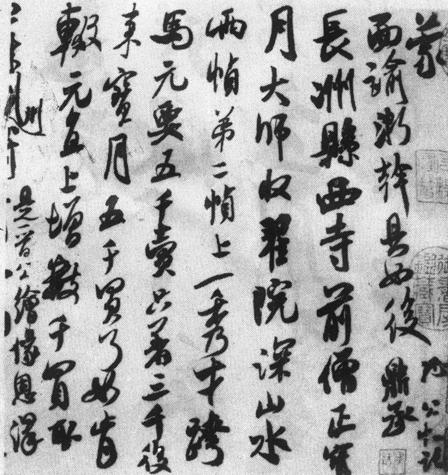 蒙
面諭浙幹具如後
長洲縣西寺前僧正寶
月大師收翟院深山水
兩幀第二幀上一秀才跨
馬元要五千賣只著三千後
來寶月五千買了如肯
輟元直上增數千買取
是一晉公繪像恩澤